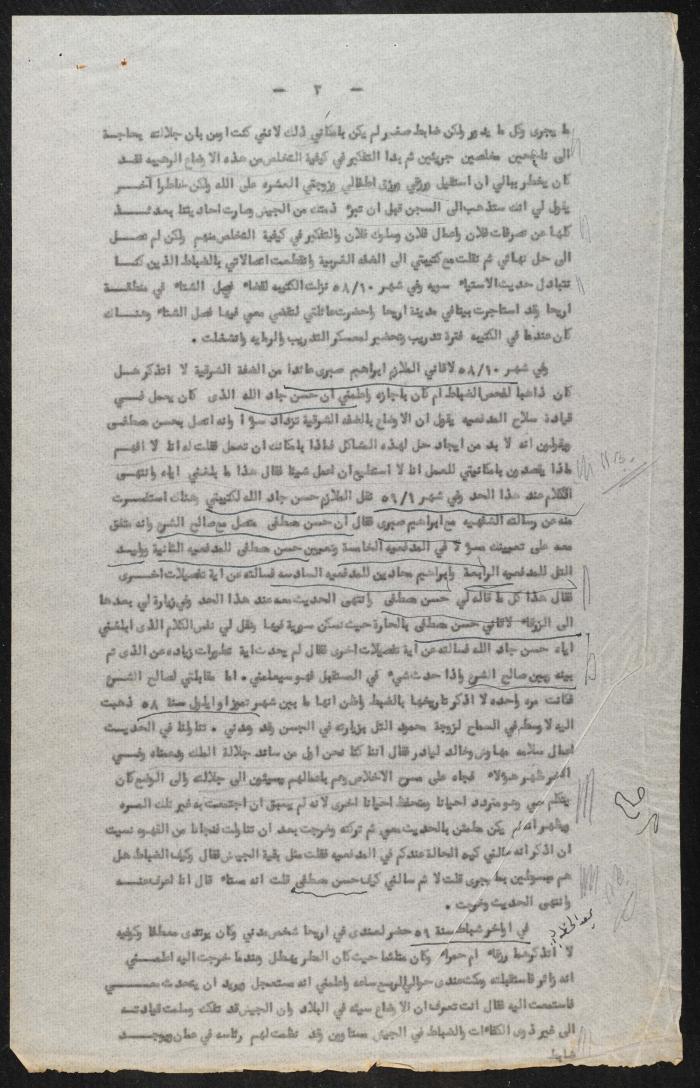 — ٢ —
ما يجرى وكل ما يدور ولكن ضابط صغير لم يكن بامكاني ذلك لانني كنت اومن بان جلالته بحاجة
الى ناصحين مخلصين جريئين ثم بدا التفكير في كيفية التخلص من هذه الاوضاع الرهيبه لقد
كان يخطر ببالي ان استقيل ورزقي ورزق اطفالي وزوجتي العشره على الله ولكن خاطرا آخر
يقول لي انك ستذهب الى السجن قبل ان تبرئ ذمتك من الجيش وصارت احاديثنا بعد
كلها عن تصرفات فلان واعمال فلان وسلوك فلان والتفكير في كيفية التخلص منهم ولكن لم نصل
الى حل نهائي ثم نقلت مع كتيبتي الى الضفه الغربية وانقطعت اتصالاتي بالضباط الذين كنا
نتبادل حديث الاستياء سويه وفي شهر ٥٨/١٠ نزلت الكتيبه لقضاء فصل الشتاء في منطقة
اريحا وقد استاجرت بيتا في مدينة اريحا واحضرت عائلتي لتقضي معي فيها فصل الشتاء وهناك
كان عندها في الكتيبه فترة تدريب وتحضير لمعسكر التدريب والرمايه وانشغلت .
وفي شهر ٥٨/١٠ لاقاني الملازم ابراهيم صبرى عائدا من الضفة الشرقية لا اتذكر هل
كان ذاهبا لفحص الضباط ام كان باجازه واعلمني ان حسن جاد الله الذى كان يعمل في
قيادة سلاح المدفعيه يقول ان الاوضاع بالضفه الشرقية تزداد سوءا وانه اتصل بحسن مصطفى
ويقولون انه لا بد من ايجاد حل لهذه المشاكل فماذا بامكانك ان تعمل فقلت له انا لا افهم
ماذا يقصدون بامكانيتي للعمل انا لا استطيع ان اعمل شيئا فقال هذا ما بلغني اياه وانتهى
الكلام عند هذا الحد وفي شهر ٥٩/١ نقل الملازم حسن جاد الله لكتيبتي وهناك استفسرت
منه عن رسالته الشفهيه مع ابراهيم صبرى قال ان حسن مصطفى متصل مع صالح الشرع وانه متفق
معه على تعيينك مسؤولا في المدفعيه الخامسة وتعيين حسن مصطفى للمدفعيه الثانية ووليد
التل للمدفعيه الرابعة وابراهيم محادين للمدفعيه السادسه فسالته عن اية تفصيلات اخرى
فقال هذا كل ما قاله لي حسن مصطفى وانتهى الحديث معه عند هذا الحد وفي زيارة لي بعدها
الى الزرقاء لاقاني حسن مصطفى بالحارة حيث نسكن سوية فيها ونقل لي نفس الكلام الذى ابلغني
اياه حسن جاد الله فسالته عن آية تفصيلات اخرى فقال لم يحدث اية تطورات زياده عن الذى تم
بينه وبين صالح الشرع واذا حدث شيء في المستقبل فهو سيعلمني . اما مقابلتي لصالح الشرع
فكانت مره واحده لا اذكر تاريخها بالضبط واظن انها ما بين شهر تموز او ايلول سنة ٥٨ ذهبت
اليه لاوسطه في السماح لزوجة محمود التل بزيارته في السجن وقد وعدني . تناولنا في الحديث
اعمال سلامه وخالد ليادر فقال اننا كنا نحن اولى من ساند جلالة الملك
على مسرح الاخلاص وهم باعمالهم يسيئون الى جلالته والى الوضع كان
يتكلم معي وهو متردد احيانا ومتحفظ احيانا اخرى لانه لم يسبق ان اجتمعت به غير تلك المره
ويظهر انه لم يكن مطمئن بالحديث معي ثم تركته وخرجت بعد ان تناولت فنجانا من القهوه نسيت
ان اذكر انه سالني كيف الحالة عندكم في المدفعيه فقلت مثل بقية الجيش فقال وكيف الضباط هل
هم مبسوطين بما يجرى قلت لا ثم سالني كيف حسن مصطفى قلت انه مستاء قال انا اعرف عنه
وانتهى الحديث وخرجت .
في اواخر شباط سنة ٥٩ حضر لعندى في اريحا شخص مدني وكان يرتدى معطفا وكوفيه
لا اتذكرها زرقاء ام حمراء وكان متلثما حيث كان المطر يهطل وعندما خرجت اليه اعلمني
انه زائر فاستقبلته ومكث عندى حوالي الربع ساعه واعلمني انه مستعجل ويريد ان يتحدث معي
فاستمعت اليه فقال انت تعرف ان الاوضاع سيئه في البلاد وان الجيش قد تفكك وسلمت قيادته
الى غير ذوى الكفاءات والضباط في الجيش مستاوين وقد نظمت لهم رئاسه في عمان ويوجد
ضابط